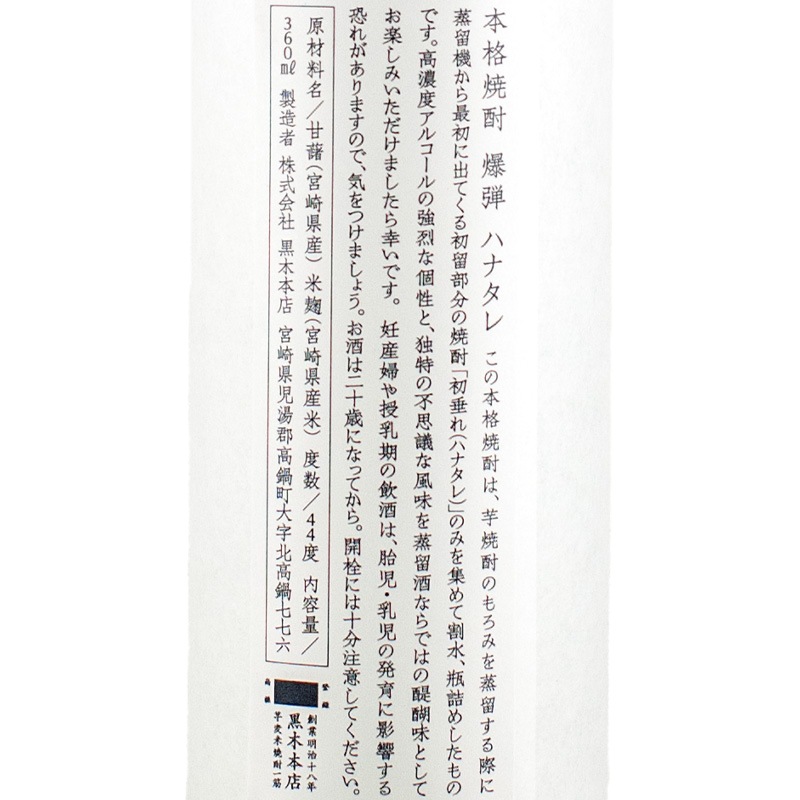 本格焼酎 爆弾 ハナタレ この本格焼酎は、芋焼酎のもろみを蒸留する際に
蒸留機から最初に出てくる初留部分の焼酎「初垂れ(ハナタレ)」のみを集めて割水、瓶詰めしたもの
です。高濃度アルコールの強烈な個性と、独特の不思議な風味を蒸留酒ならではの醍醐味として
お楽しみいただけましたら幸いです。 妊産婦や授乳期の飲酒は、胎児・乳児の発育に影響する
恐れがありますので、気をつけましょう。お酒は二十歳になってから。開栓には十分注意してください。
原材料名/甘藷(宮崎県産) 米麹(宮崎県産米) 度数/44度 内容量/
360㎖ 製造者 株式会社 黒木本店 宮崎県児湯郡高鍋町大字北高鍋七七六
登録
商標
創業明治十八年
黒木本店
芋麦米焼酎一筋